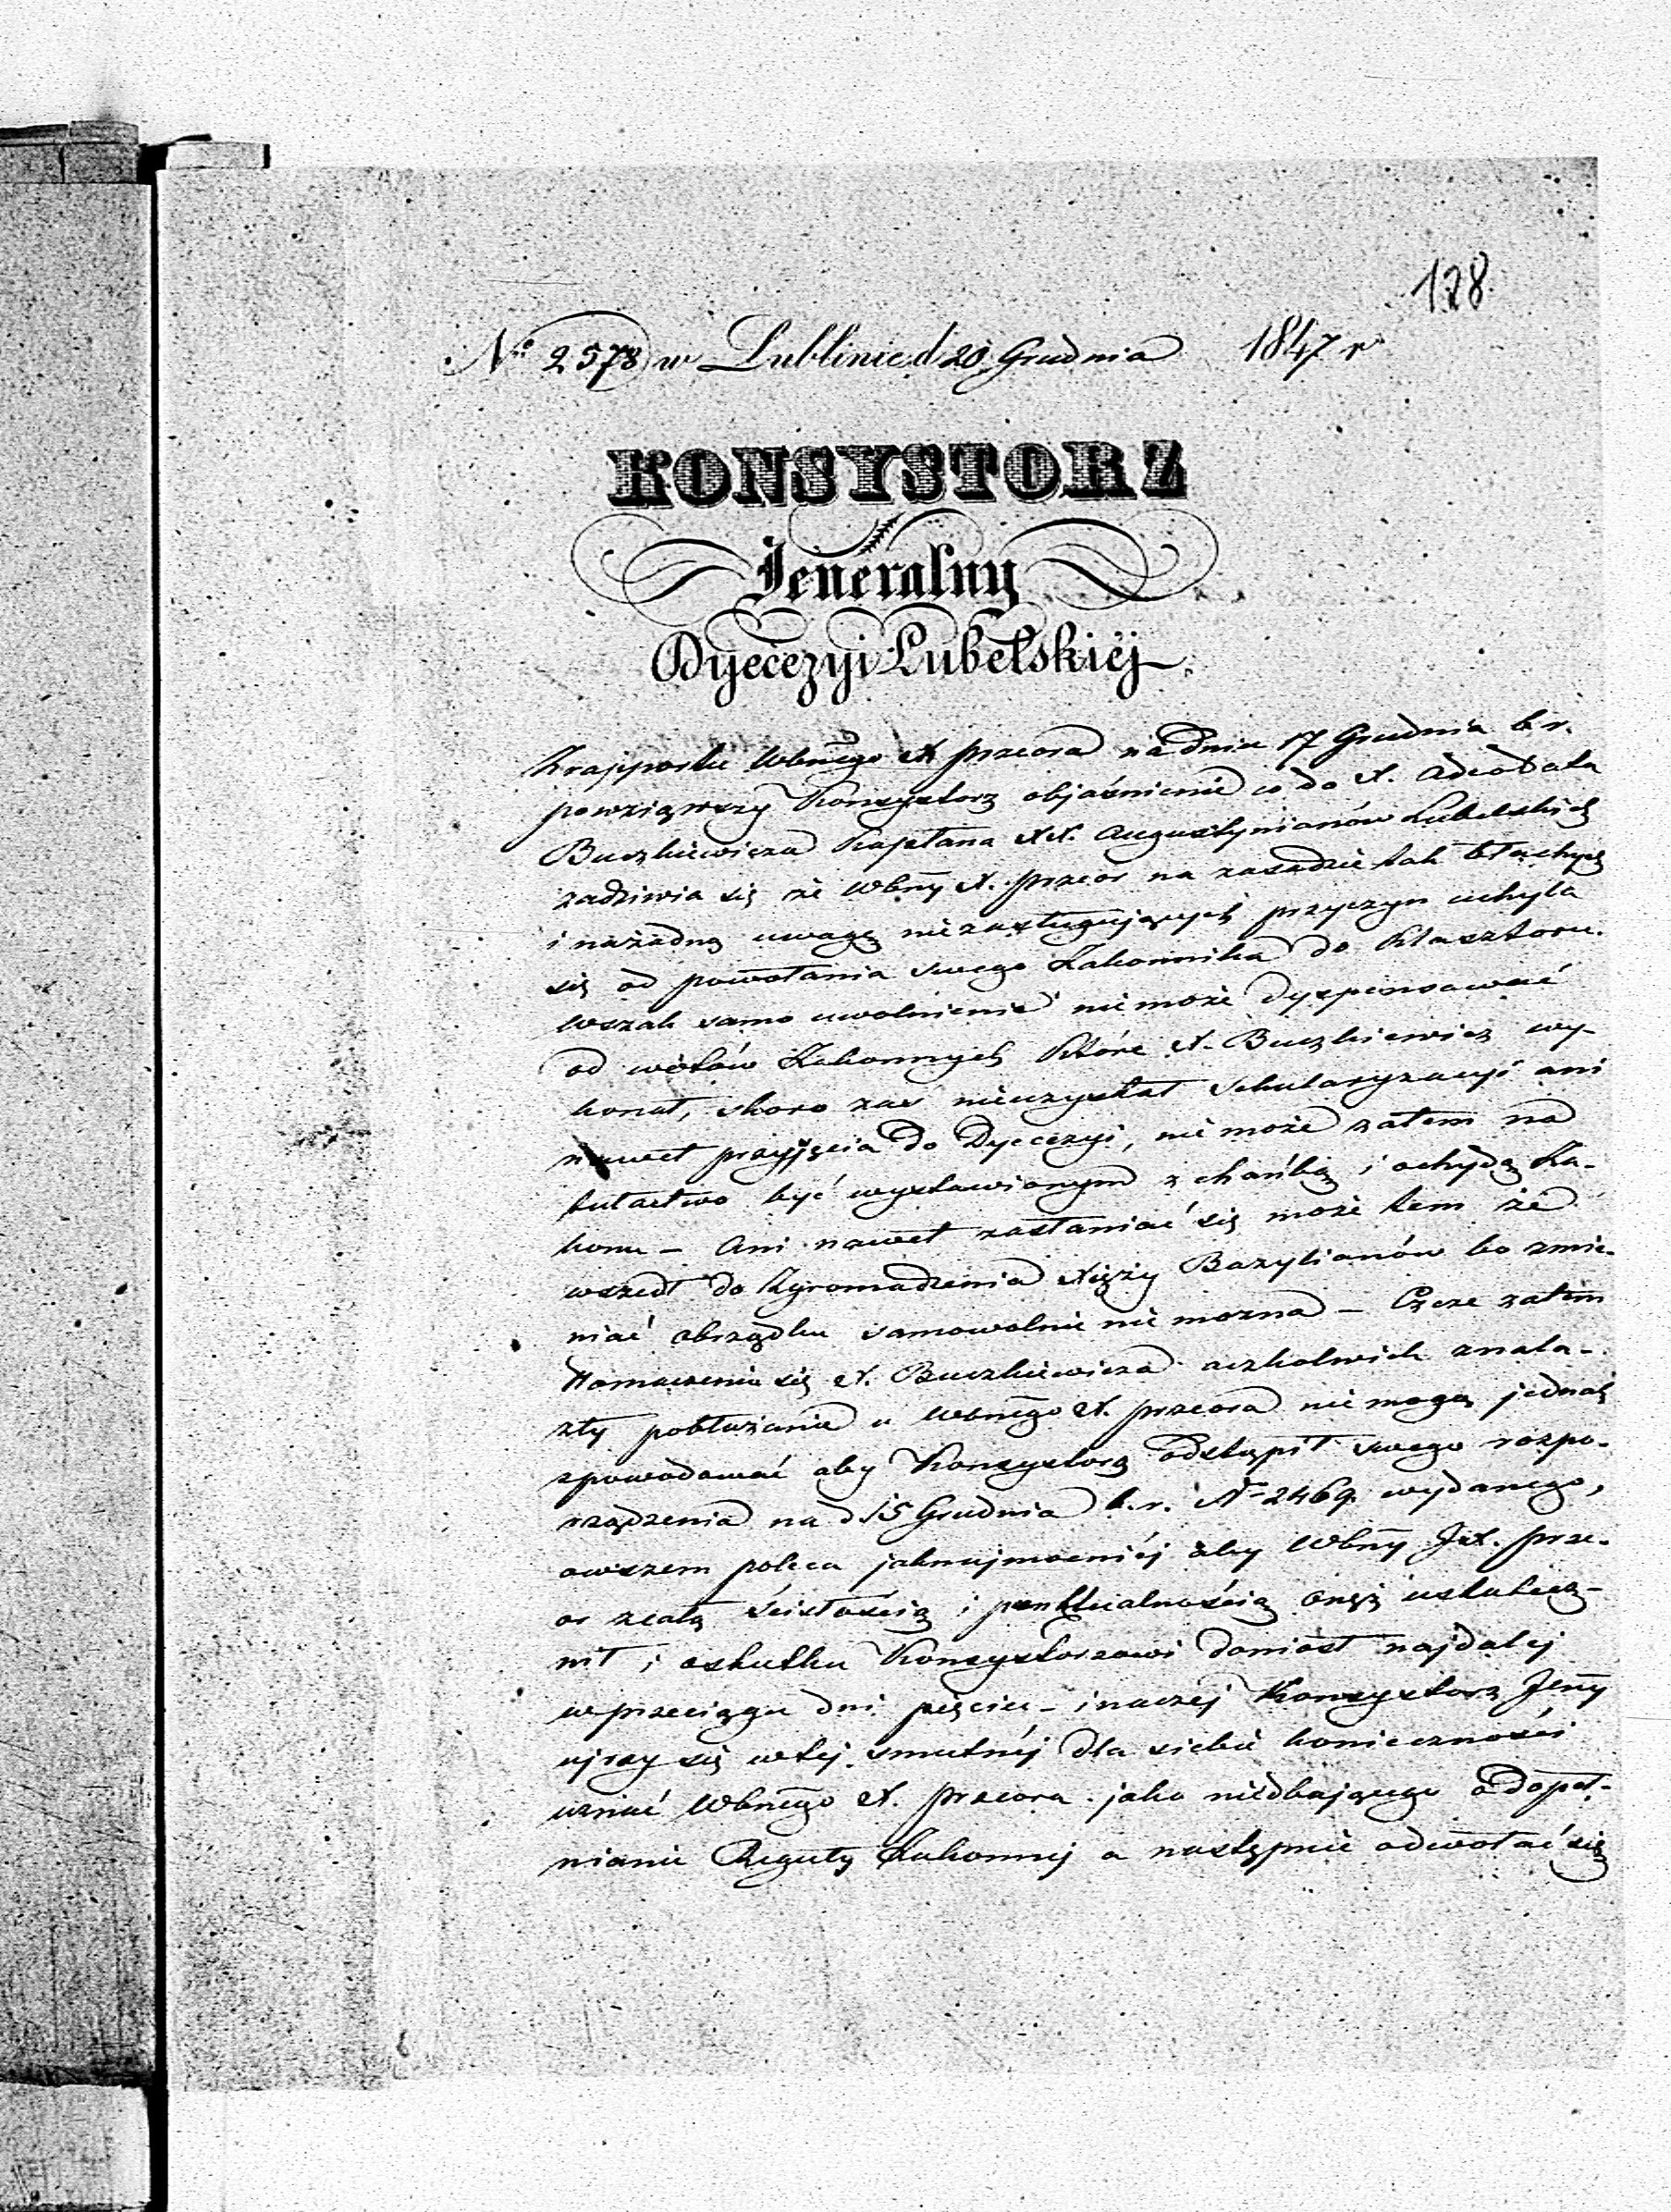 128.
No 2578 w Lublinie d 20 Grudnia 1847 r
KONSYSTORZ
Jeneralny
Dyecezyi Lubelskiéj
Z rapportu Wbnego X Przeora na dniu 17 Grudnia b. r.
powziąwszy Konsystorz objaśnienie co do X. Adeodata
Buczkiewicza Kapłana XX. Augustynianów Lubelskich
zadziwia się że Wbny X. Przeor na zasadzie tak błachych
i na żadną uwagę nie zasługujących przyczyn uchyla
się od powołania swego Zakonnika do Klasztoru.
Wszak samo uwolnienie nie może dyspensować
od wótów Zakonnych które X. Buczkiewicz wy-
konał, skoro zas nieuzyskał Sekularyzacyi ani
nawet przyjęcia do Dyecezyi, nie może zatem na
tułactwo być wystawionym z chańbą i ochydą Za-
konu – Ani nawet zasłaniać się może tem że
wszedł do Zgromadzenia Xięży Bazylianów bo zmie-
niać obrządku samowolnie nie mozna – Czcze zatem
tłomaczenie się X. Buczkiewicza aczkolwiek znala-
zły pobłużanie u Wbnego X. Przeora nie mogą jednak
spowodować aby Konsystorz odstąpił swego rozpo-
rządzenia na d 15 Grudnia b. r. No 2469. wydanego,
owszem poleca jaknajmocniéj aby Wbny JX. Prze-
or z całą ścisłością i punktualnością onęż uskutecz-
nił i o skutku Konsystorzowi doniósł najdalej
w przeciągu dni pięciu – inaczej Konsystorz Jlny
ujrzy się w tej smutnéj dla siebie konieczności
uznać Wbnego X. Przeora jako niedbającego o dopeł-
nianie Reguły Zakonnej a następnie odwołać się